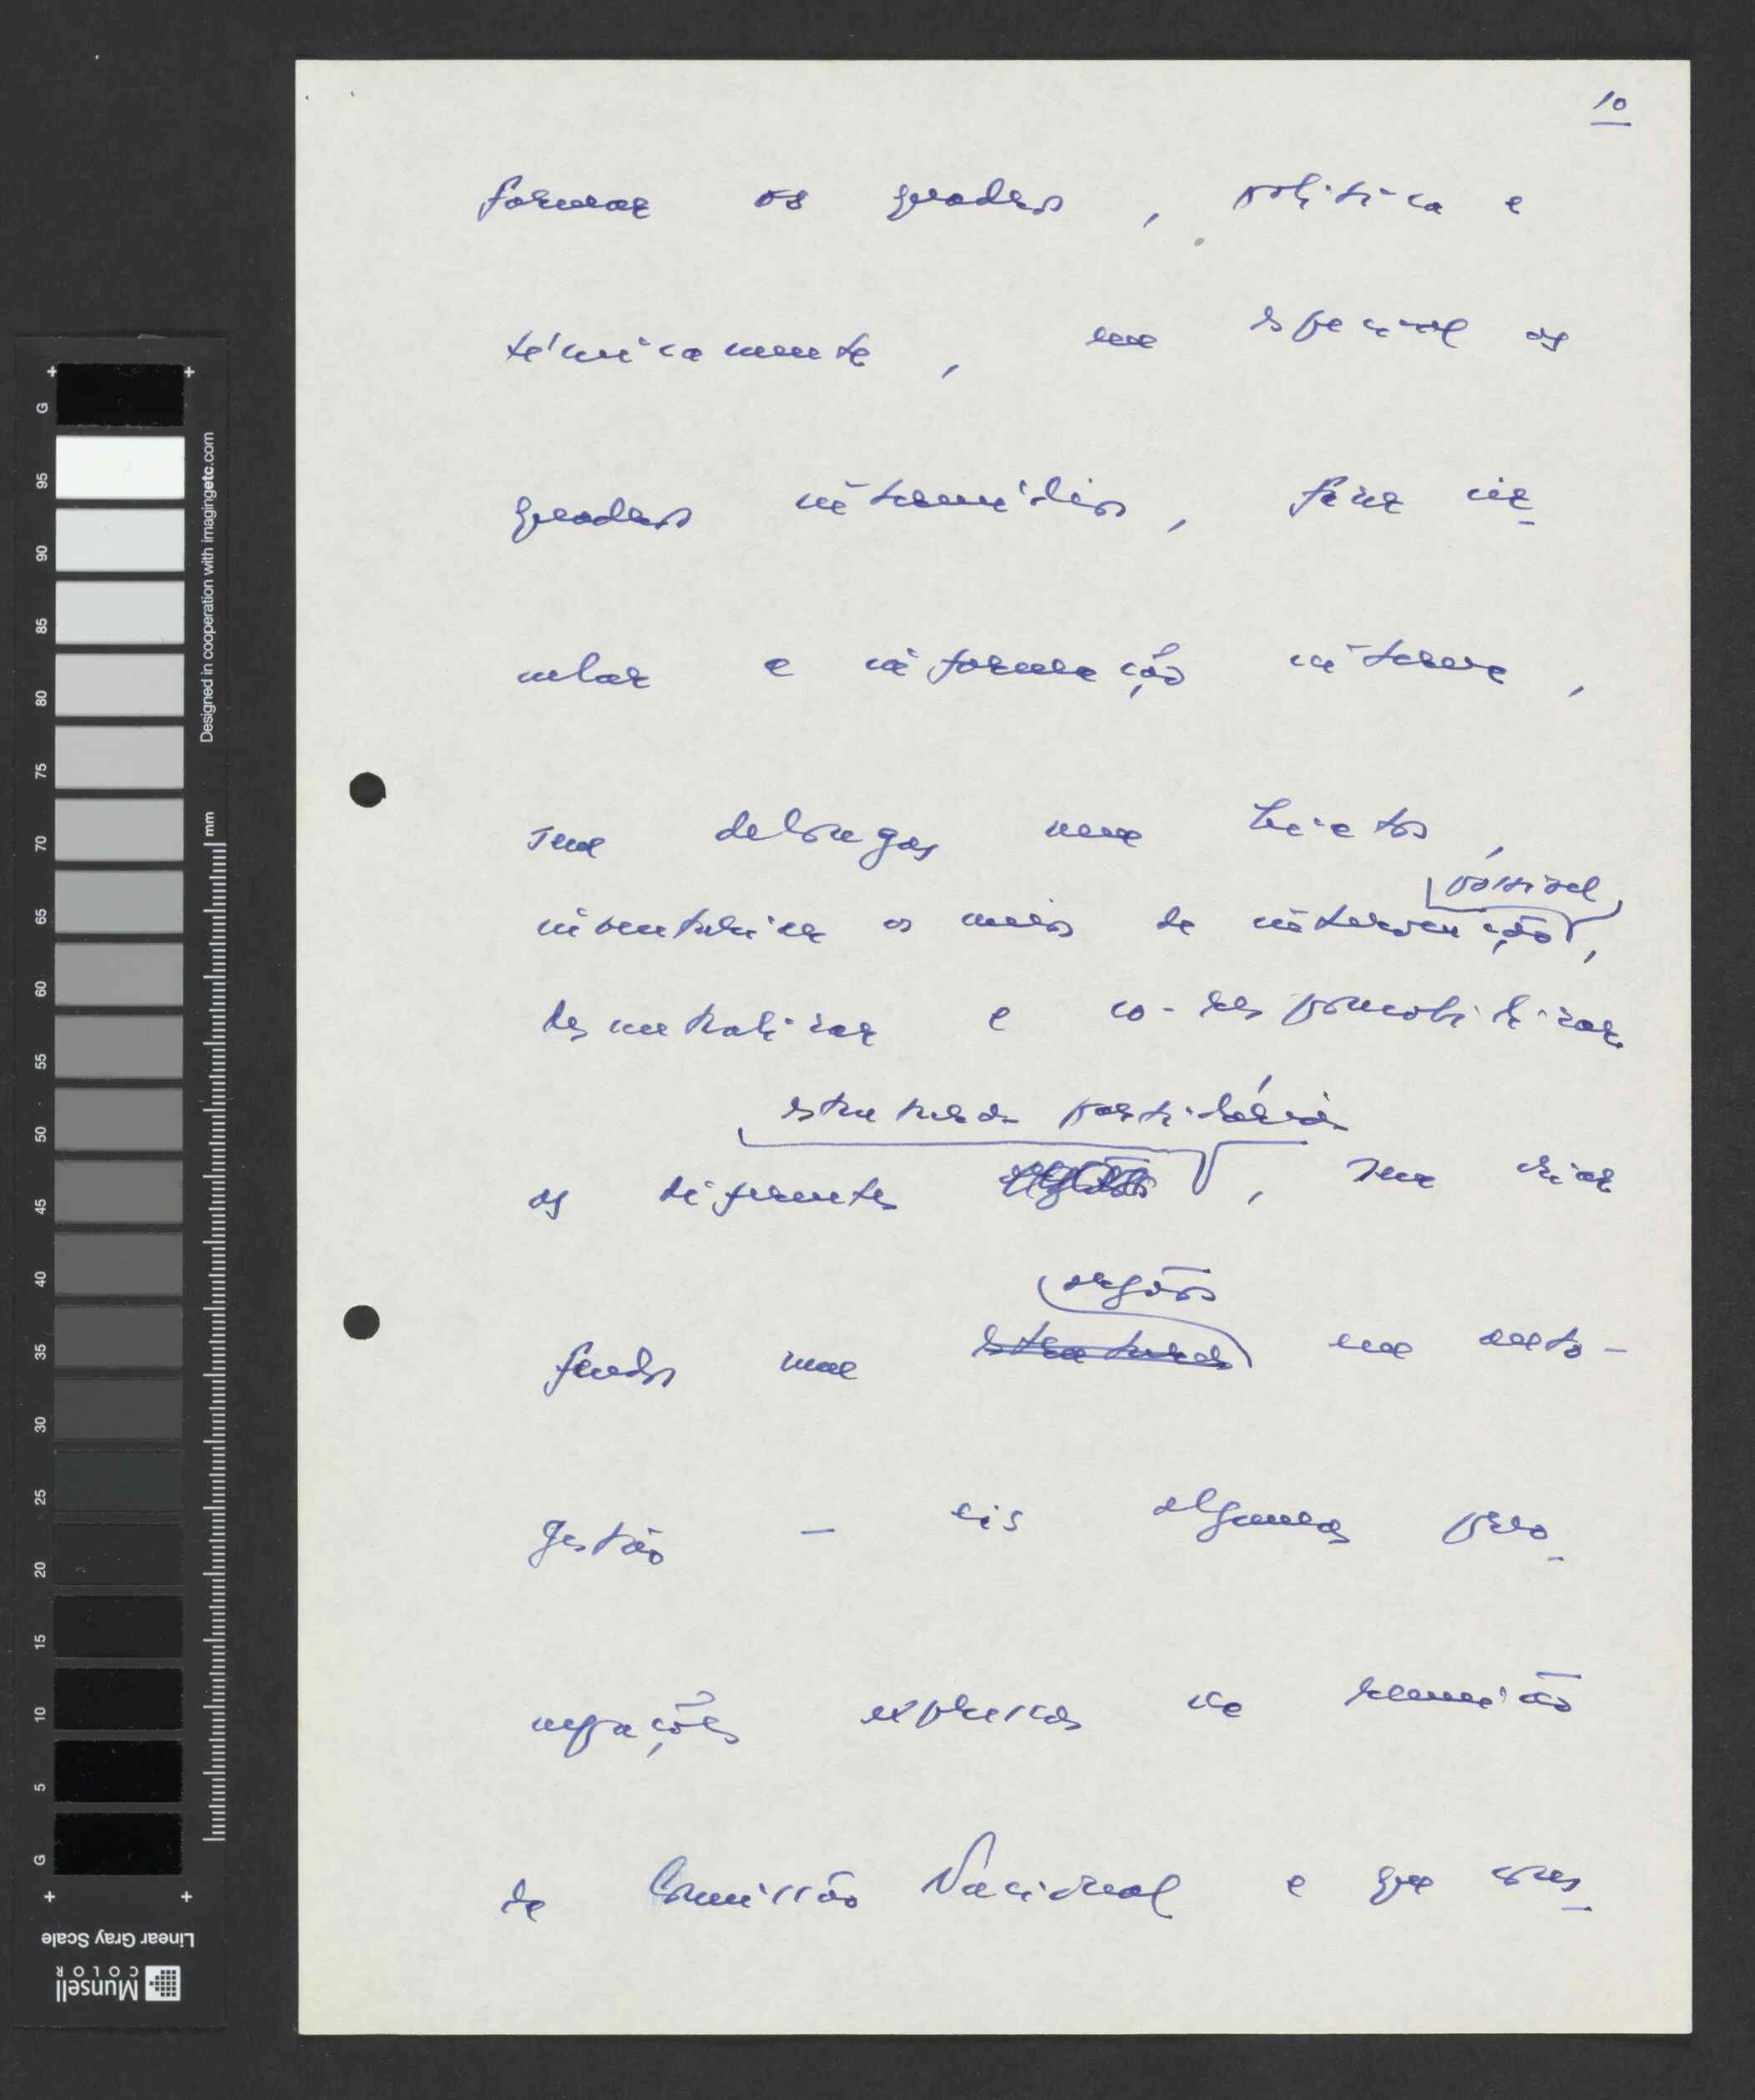 10
formar os quadros, política e
técnicamente, em especial os
quadros intermédios, fazer cir-
cular a informação interna,
sem delongas nem hiatos,
possível
inventariar os meios de intervenção,
descentralizar e co-responsabilizar
estruturas partidárias
as diferentes, sem criar
órgãos
feudos nem estruturas em auto-
gestão — eis algumas preo-
cupações expressas na reunião
da Comissão Nacional e que cons-
G 95 90 85 80 75 70 65 60 55 50 45 40 35 30 25 20 15 10 5 G
Designed in cooperation with imagingetc.com
mm
Linear Gray Scale
Munsell
COLOR